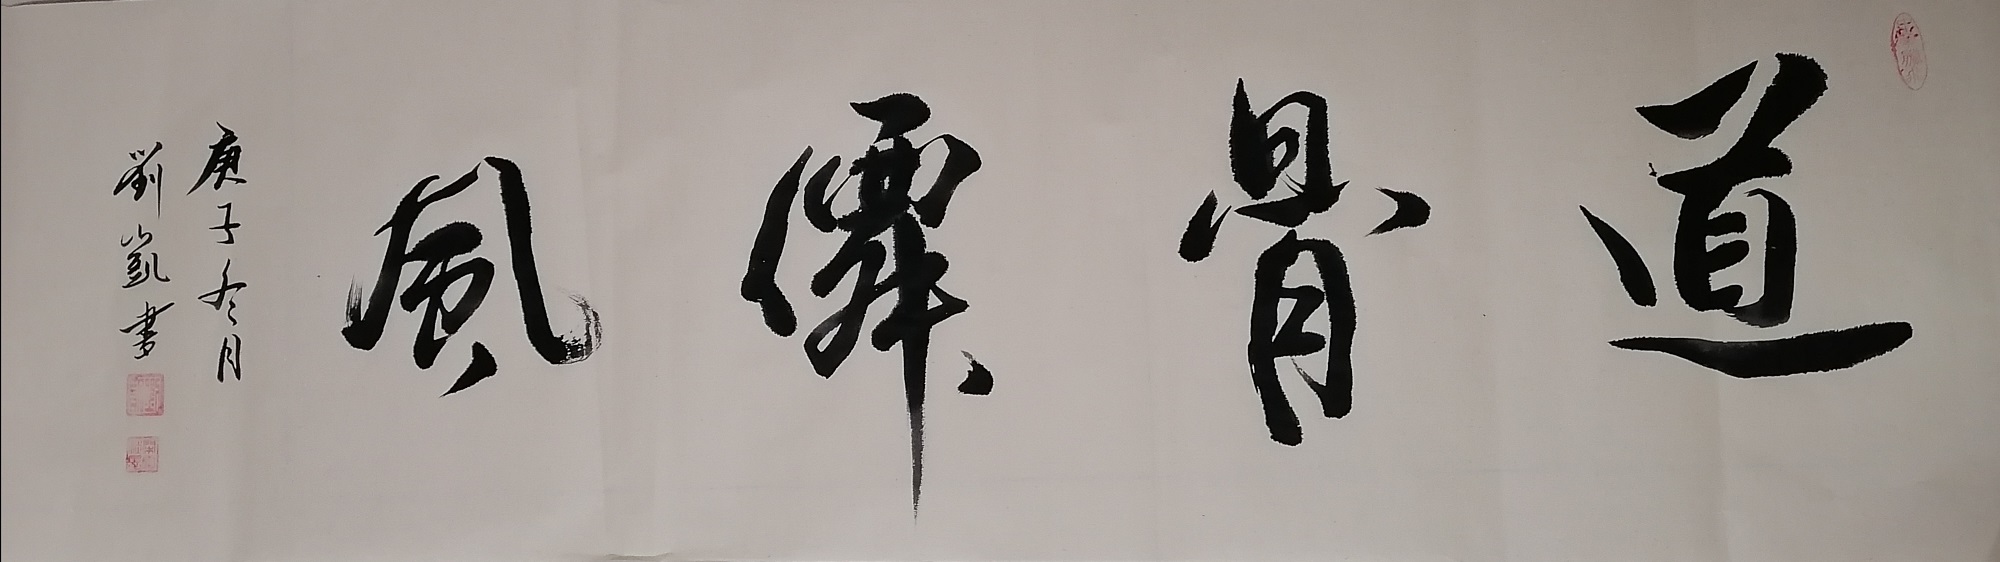 道骨僊風
庚子冬月
劉凱書